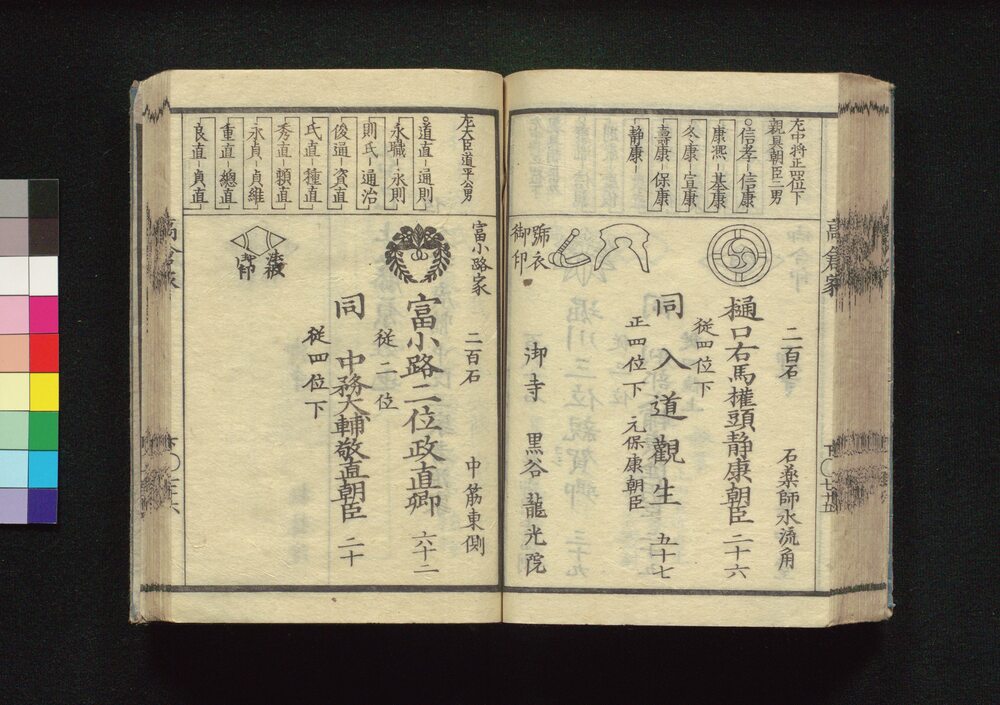 左中将正四位下
親具朝臣二男
信孝－信康
康凞－基康
冬康－宜康
壽康－保康
静康－
二百石
石薬師水流角
樋口右馬權頭静康朝臣 二十六
從四位下
同 入道觀生 五十七
正四位下 元保康朝臣
御寺 黒谷 龍光院
御印
左大臣道平公男
道直－通則
永職－永則
則氏－通治
俊通－資直
氏直－種直
秀直－頼直
永貞－貞維
重直－總直
良直－貞直
富小路家
二百石
中筋東側
富小路二位政直卿 六十二
從二位
同 中務大輔敬直朝臣 二十
從四位下
高倉家
高倉家